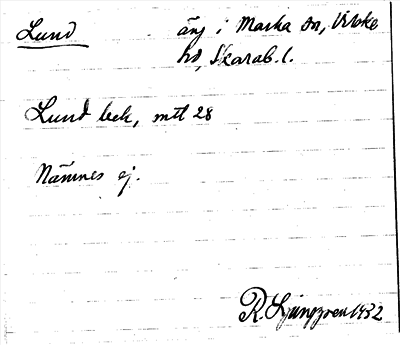 Lund äng i Marka sn, Vilske
hd, Skarab. l.
Lund beck, mtl 28
Nämnes ej.
R. Ljunggren 1932